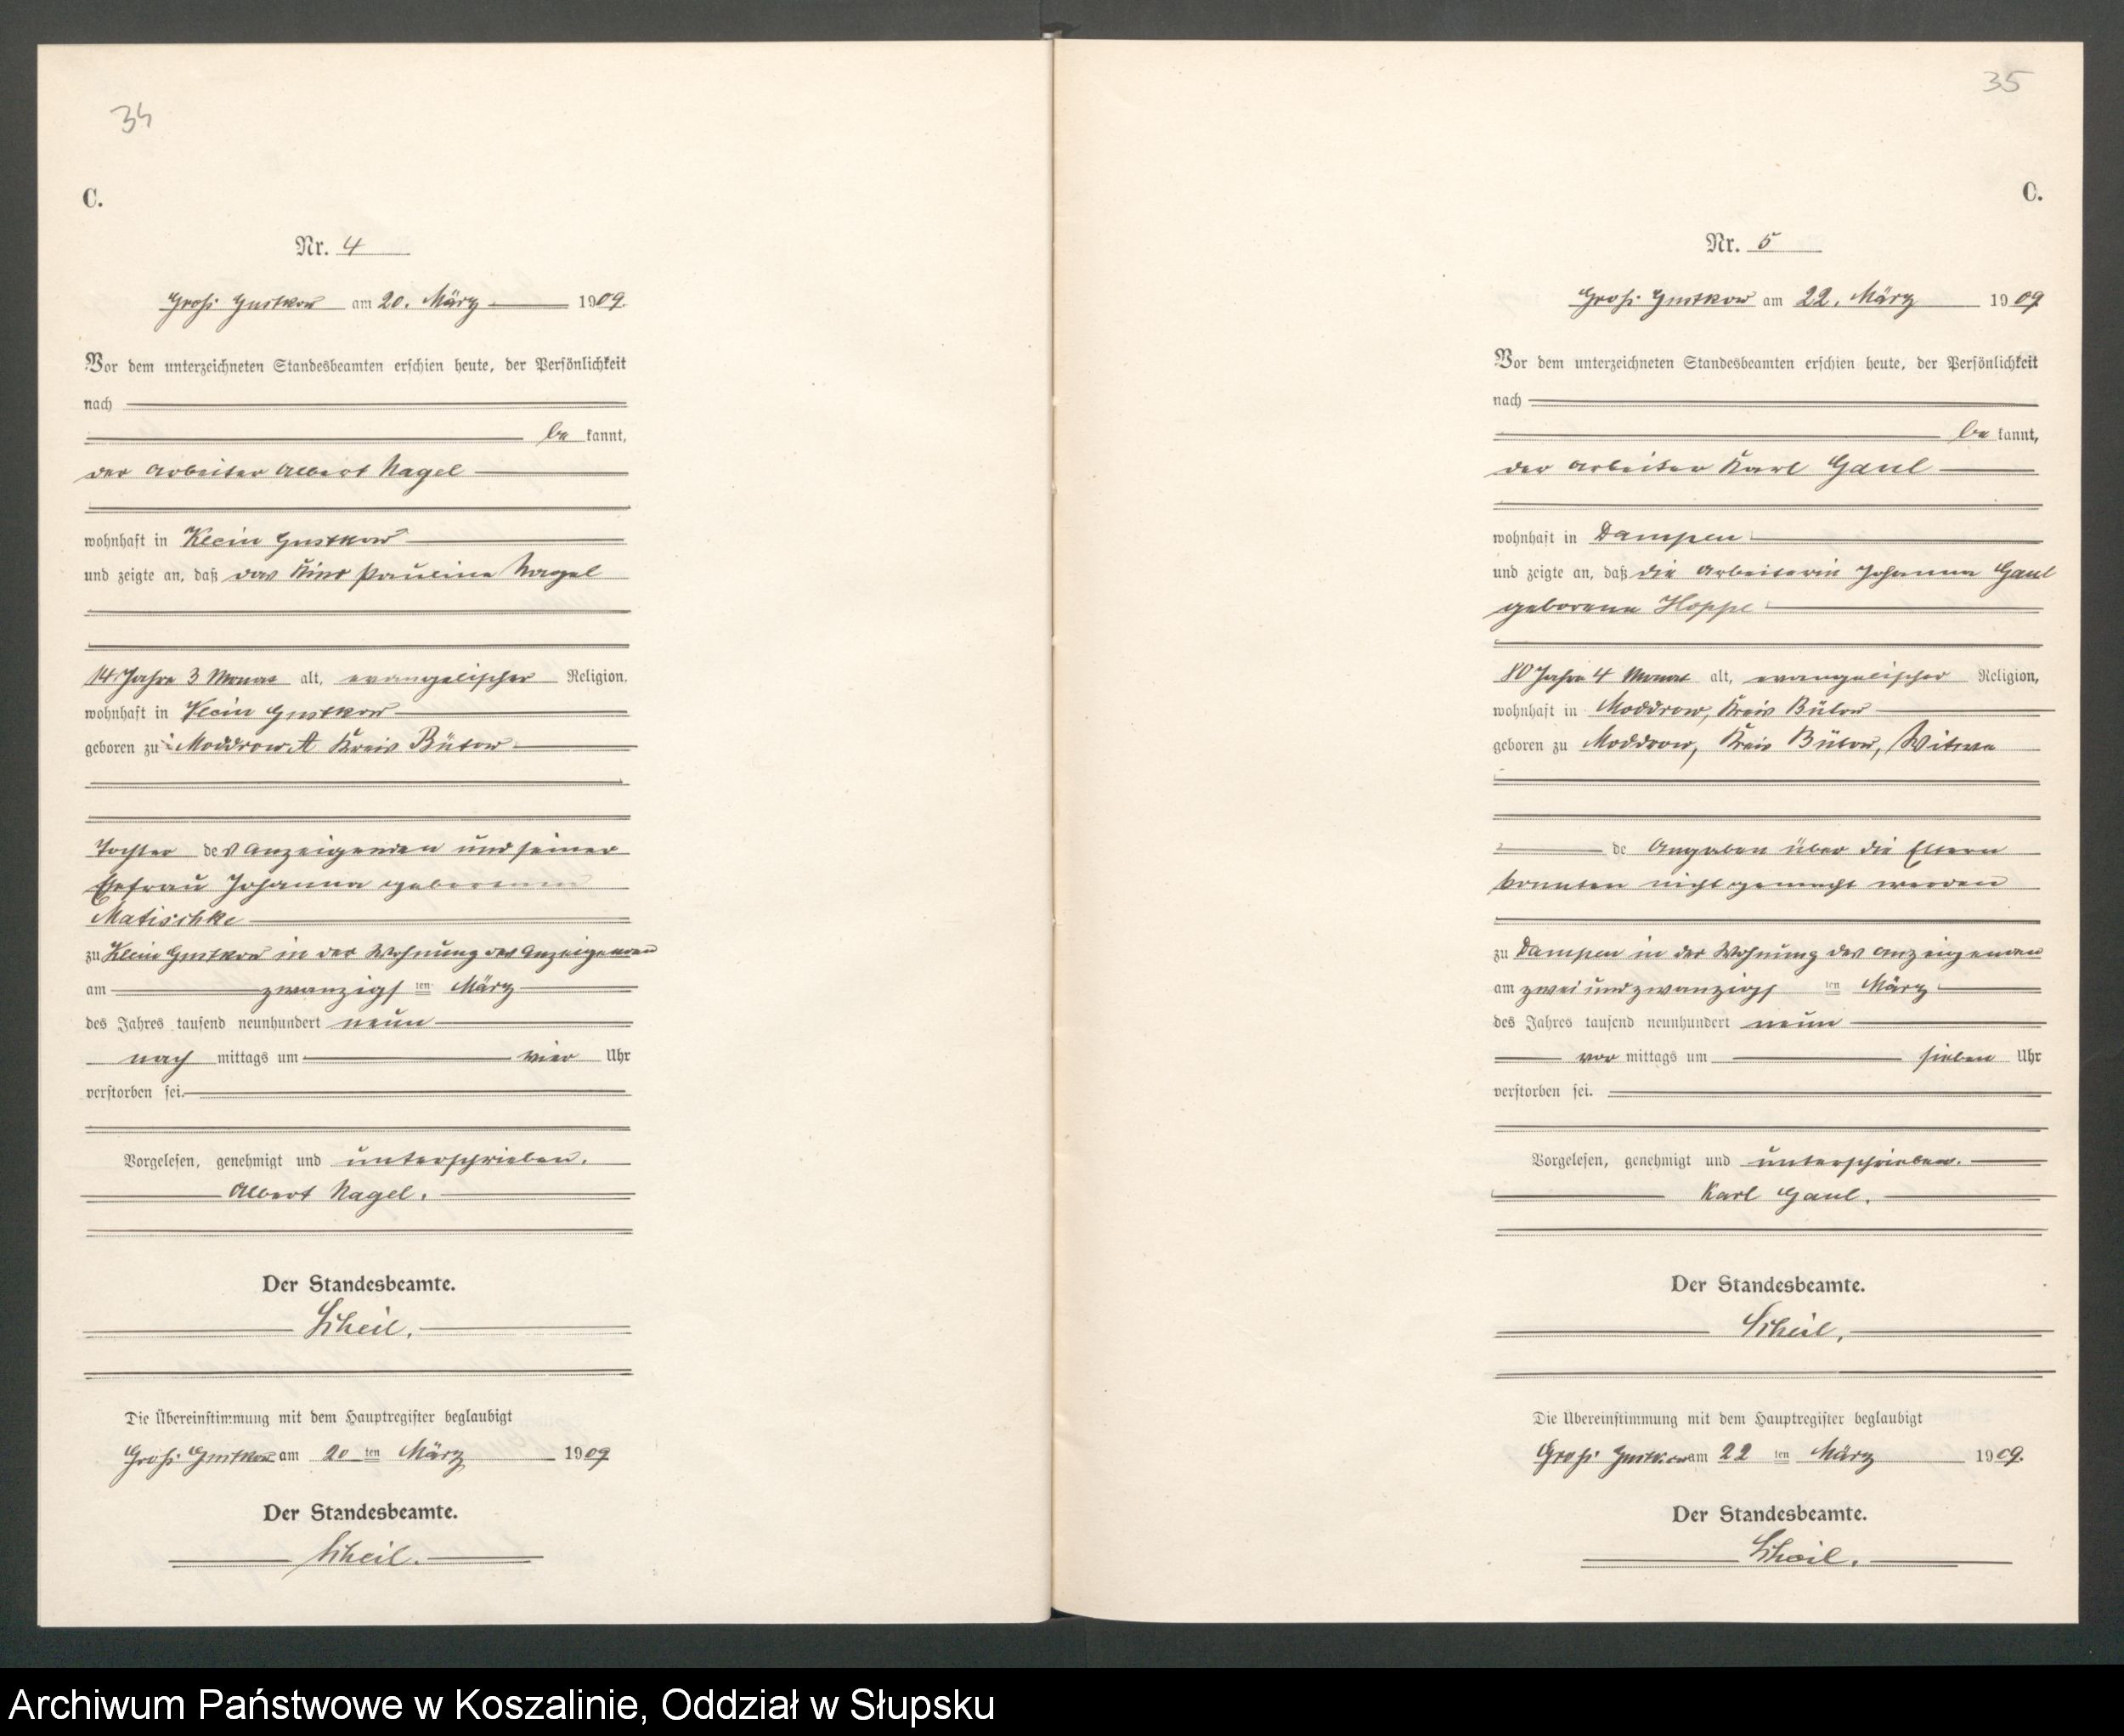 34
C.
Nr. 4
Groß Gustkow am 20. März 1909.
Vor dem unterzeichneten Standesbeamten erschien heute, der Persönlichkeit
nach
be kannt,
der Arbeiter Albert Nagel
wohnhaft in Klein Gustkow
und zeigte an, daß das Kind Pauline Nagel
14 Jahre 3 Monat alt, evangelischer Religion,
wohnhaft in Klein Gustkow
geboren zu Moddrow A Kreis Bütow
Tochter des Anzeigenden und seiner
Ehefrau Johanna geborenen
Matischke
zu Klein Gustkow in der Wohnung des Anzeigenden
am zwanzigs ten März
des Jahres tausend neunhundert neun
nach mittags um vier Uhr
verstorben sei.
Vorgelesen, genehmigt und unterschrieben.
Albert Nagel.
Der Standesbeamte.
Scheil.
Die Übereinstimmung mit dem Hauptregister beglaubigt
Groß Gustkow am 20 ten März 1909
Der Standesbeamte.
Scheil.
35
C.
Nr. 5
Groß Gustkow am 22. März 1909
Vor dem unterzeichneten Standesbeamten erschien heute, der Persönlichkeit
nach
be kannt,
der Arbeiter Karl Gaul
wohnhaft in Dampen
und zeigte an, daß die Arbeiterin Johanna Gaul
geborene Hoppe
80 Jahre 4 Monat alt, evangelischer Religion,
wohnhaft in Moddrow, Kreis Bütow
geboren zu Moddrow, Kreis Bütow, Witwe
de Angaben über die Eltern
konnten nicht gemacht werden
zu Dampen in der Wohnung des Anzeigenden
am zwei und zwanzigs ten März
des Jahres tausend neunhundert neun
vor mittags um sieben Uhr
verstorben sei.
Vorgelesen, genehmigt und unterschrieben.
Karl Gaul.
Der Standesbeamte.
Scheil.
Die Übereinstimmung mit dem Hauptregister beglaubigt
Groß Gustkow am 22 ten März 1909.
Der Standesbeamte.
Scheil.
Archiwum Państwowe w Koszalinie, Oddział w Słupsku